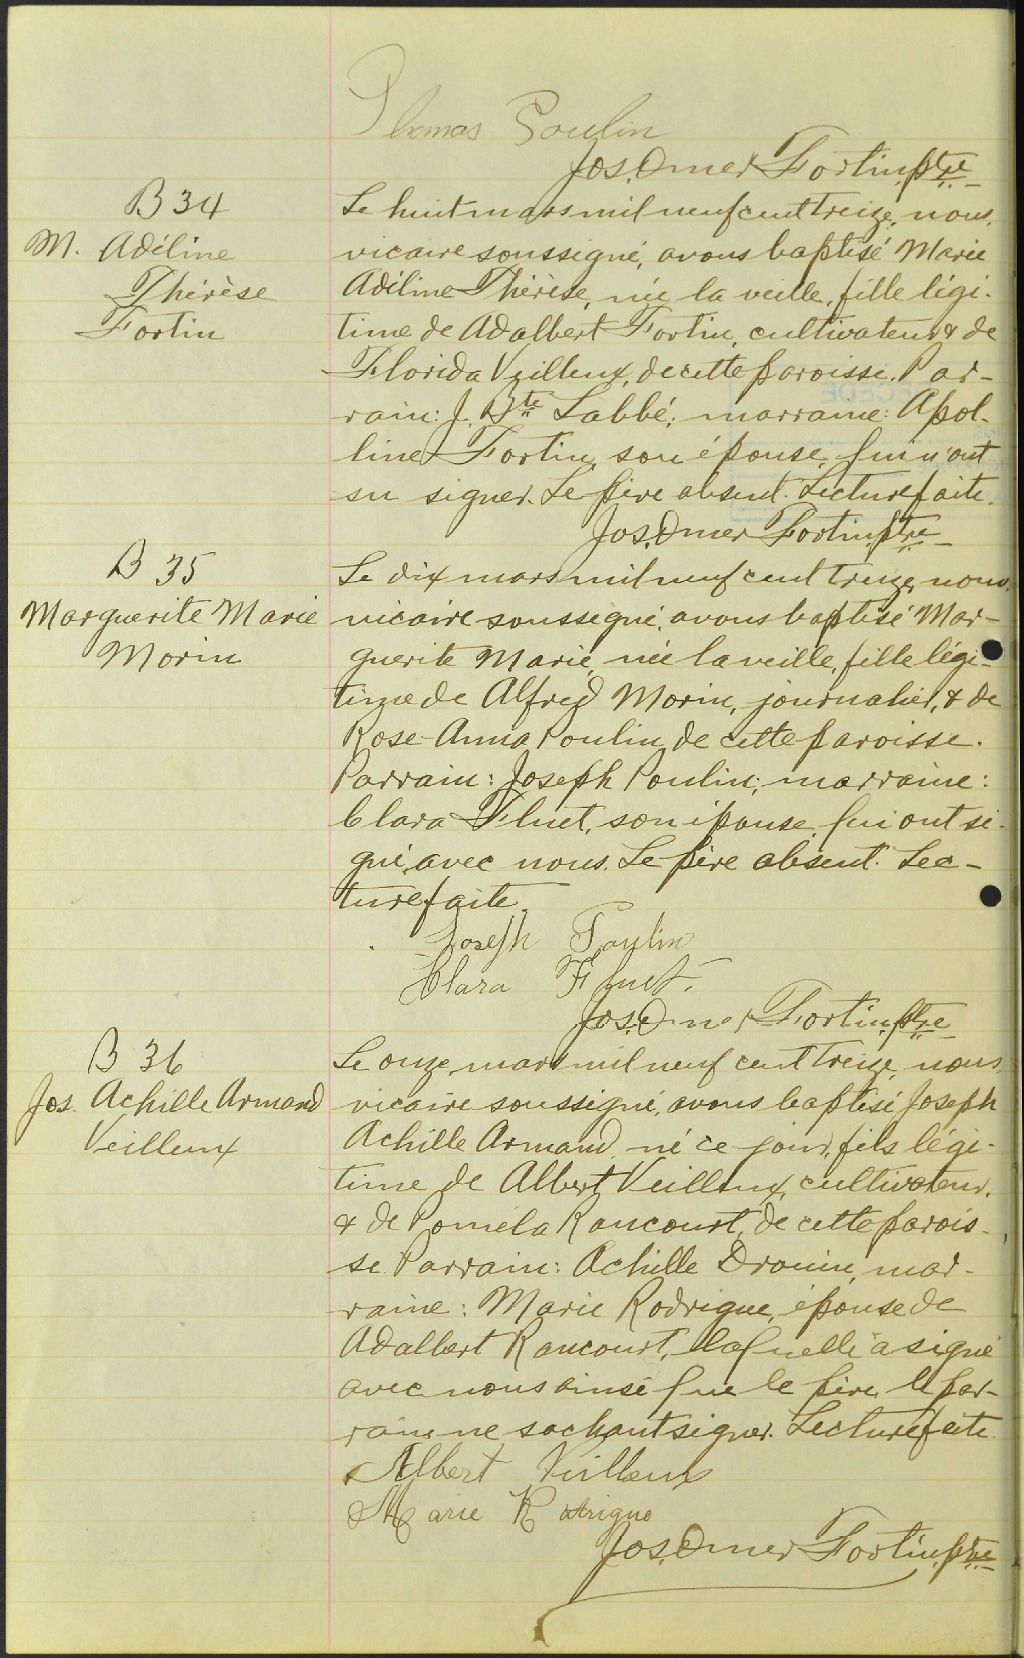 Thomas Poulin
Jos. Omer Fortin, ptre
B 34
M. Adéline
Thérèse
Fortin
Le huit mars mil neuf cent treize, nous,
vicaire soussigné, avons baptisé Marie
Adéline Thérèse, née la veille, fille légi-
time de Adalbert Fortin, cultivateur & de
Florida Veilleux, de cette paroisse. Par-
rain: J. Bte Labbé; marraine: Apol-
line Fortin, son épouse, qui n'ont
su signer. Le père absent. Lecture faite.
Jos. Omer Fortin, ptre
B 35
Marguerite Marie
Morin
Le dix mars mil neuf cent treize, nous,
vicaire soussigné, avons baptisé Mar-
guerite Marie, née la veille, fille légi-
time de Alfred Morin, journalier, & de
Rose-Anna Poulin, de cette paroisse.
Parrain: Joseph Poulin; marraine:
Clara Fluet, son épouse, qui ont si-
gné avec nous. Le père absent. Lec-
ture faite.
Joseph Poulin
Clara Fluet.
Jos. Omer Fortin, ptre
B 36
Jos. Achille Armand
Veilleux
Le onze mars mil neuf cent treize, nous,
vicaire soussigné, avons baptisé Joseph
Achille Armand, né ce jour, fils légi-
time de Albert Veilleux, cultivateur,
& de Poméla Rancourt, de cette parois-
se. Parrain: Achille Drouin, mar-
raine: Marie Rodrigue, épouse de
Adalbert Rancourt, laquelle a signé
avec nous ainsi que le père, le par-
rain ne sachant signer. Lecture faite.
Albert Veilleux
Marie Rodrigue
Jos. Omer Fortin, ptre